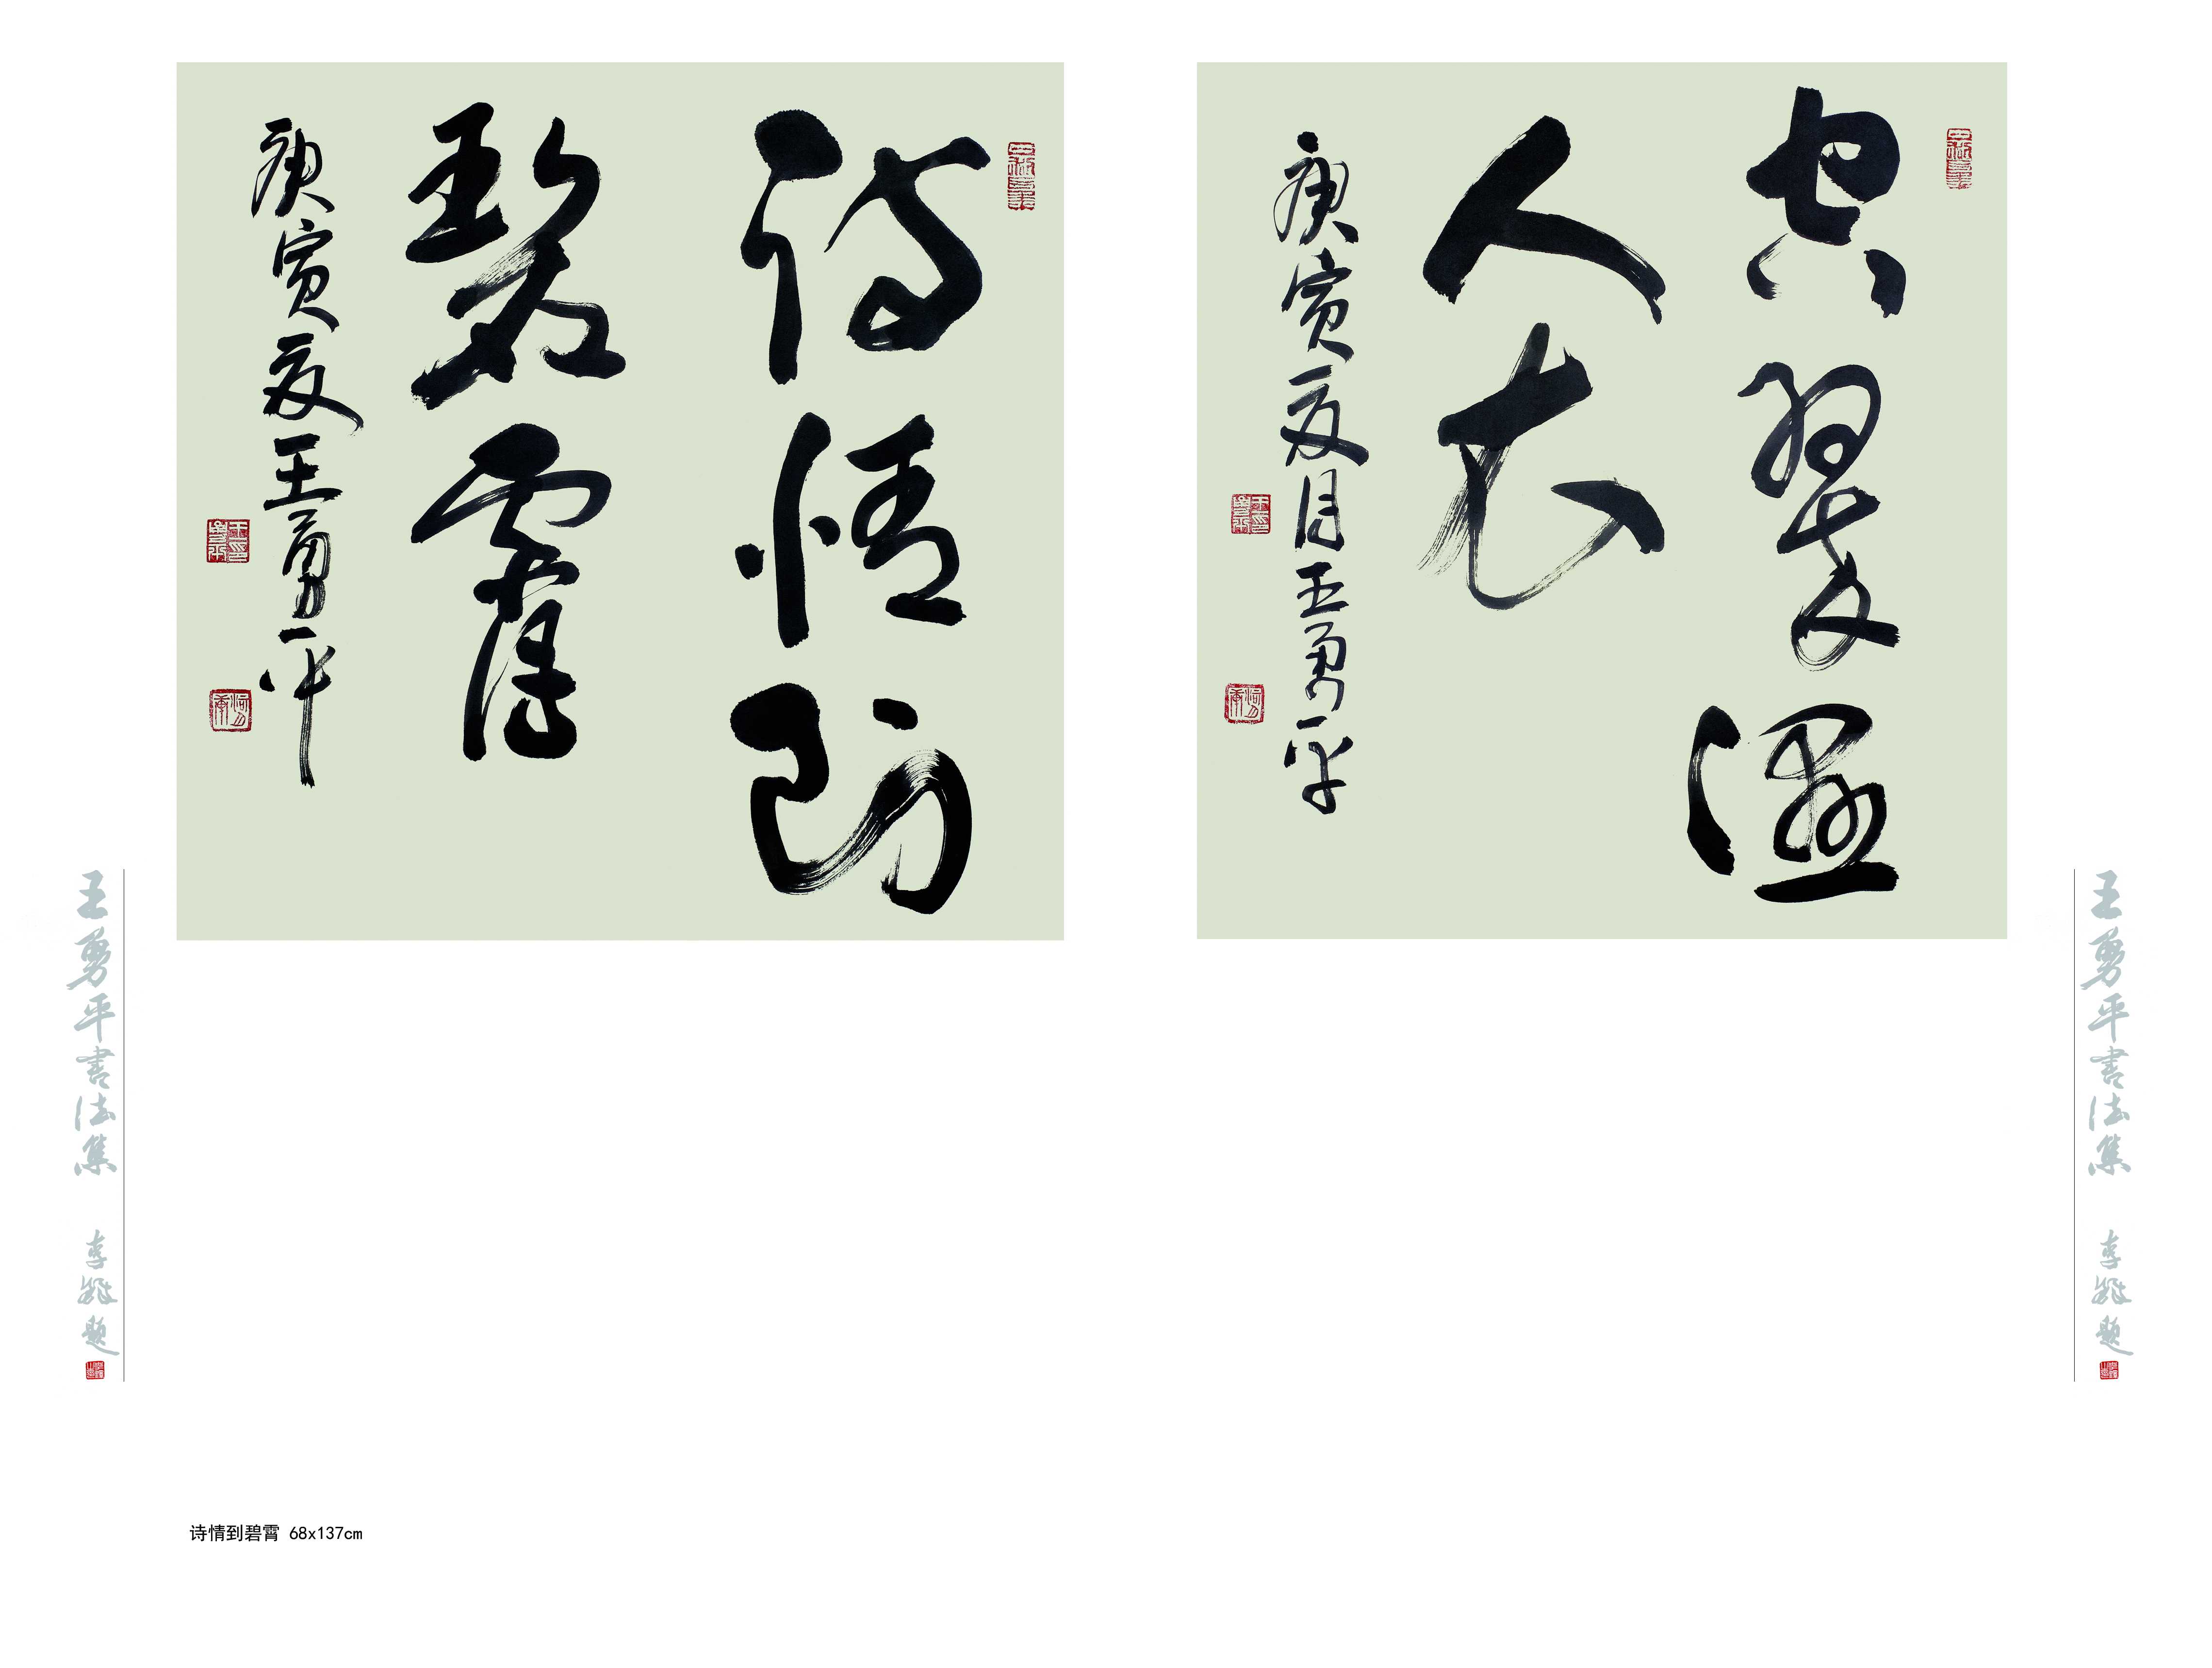 诗情到
碧霄
庚寅夏王勇平
空翠湿
人衣
庚寅夏月王勇平
王勇平書法集
李鐸题
王勇平書法集
李鐸题
诗情到碧霄 68x137cm